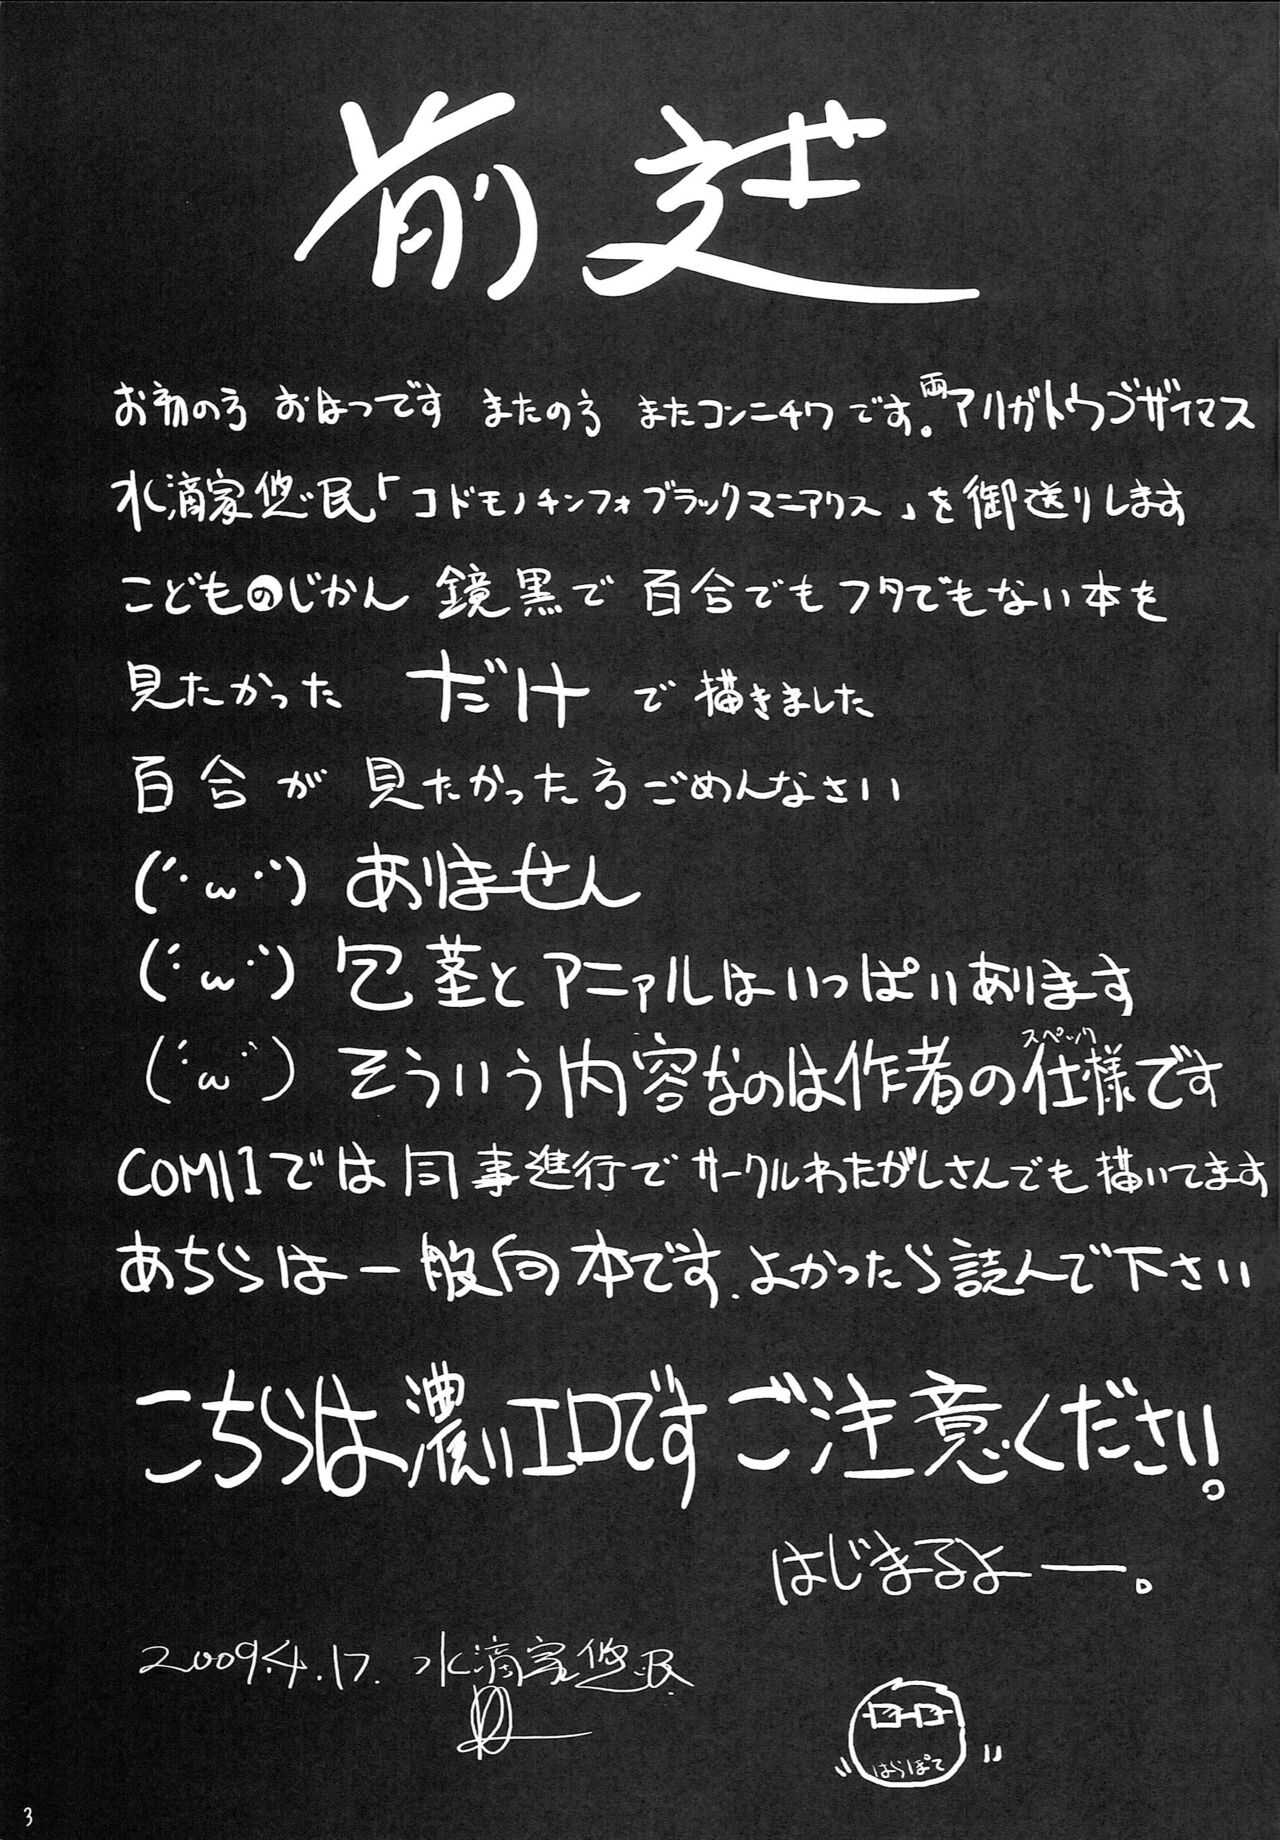 前述
お初の方 おはつです またの方 またコンニチワです。両アリガトウゴザイマス
水滴家悠民「コドモノチンフォブラックマニアクス」を御送りします
こどものじかん 鏡黒で 百合でもフタでもない本を
見たかった だけ で描きました
百合が 見たかった方ごめんなさい
(´・ω・`) ありません
(´・ω・`) 包茎とアニァルはいっぱいあります
(´・ω・`) そういう内容なのは作者の仕様です
スペック
COMI1では同事進行でサークルわたがしさんでも描いてます
あちらは一般向本です. よかったら読んで下さい
こちらは濃いエロですご注意ください。
はじまるよー。
2009.4.17. 水滴家悠民
はらぽて
3